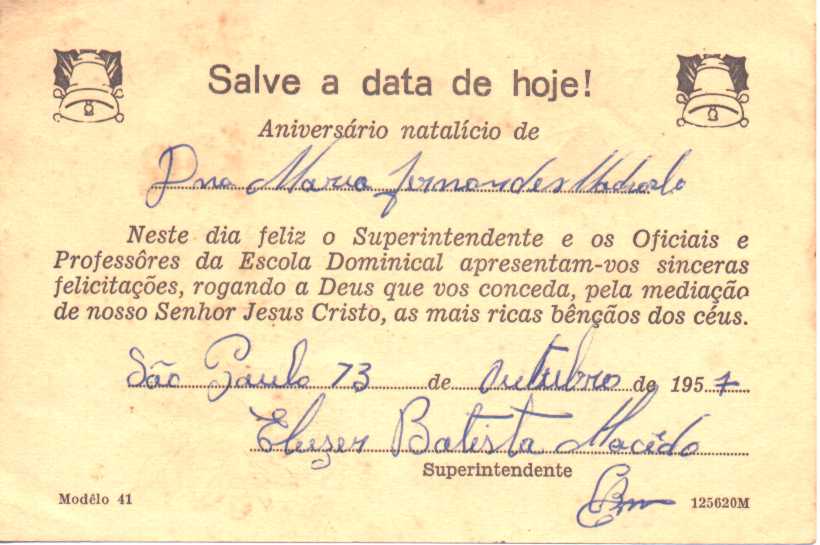 Salve a data de hoje!
Aniversário natalício de
Dna Maria Fernandes Machado
Neste dia feliz o Superintendente e os Oficiais e
Professôres da Escola Dominical apresentam-vos sinceras
felicitações, rogando a Deus que vos conceda, pela mediação
de nosso Senhor Jesus Cristo, as mais ricas bênçãos dos céus.
São Paulo 13 de outubro de 1957
Eluzer Batista Macêdo
Superintendente
Modêlo 41
125620M